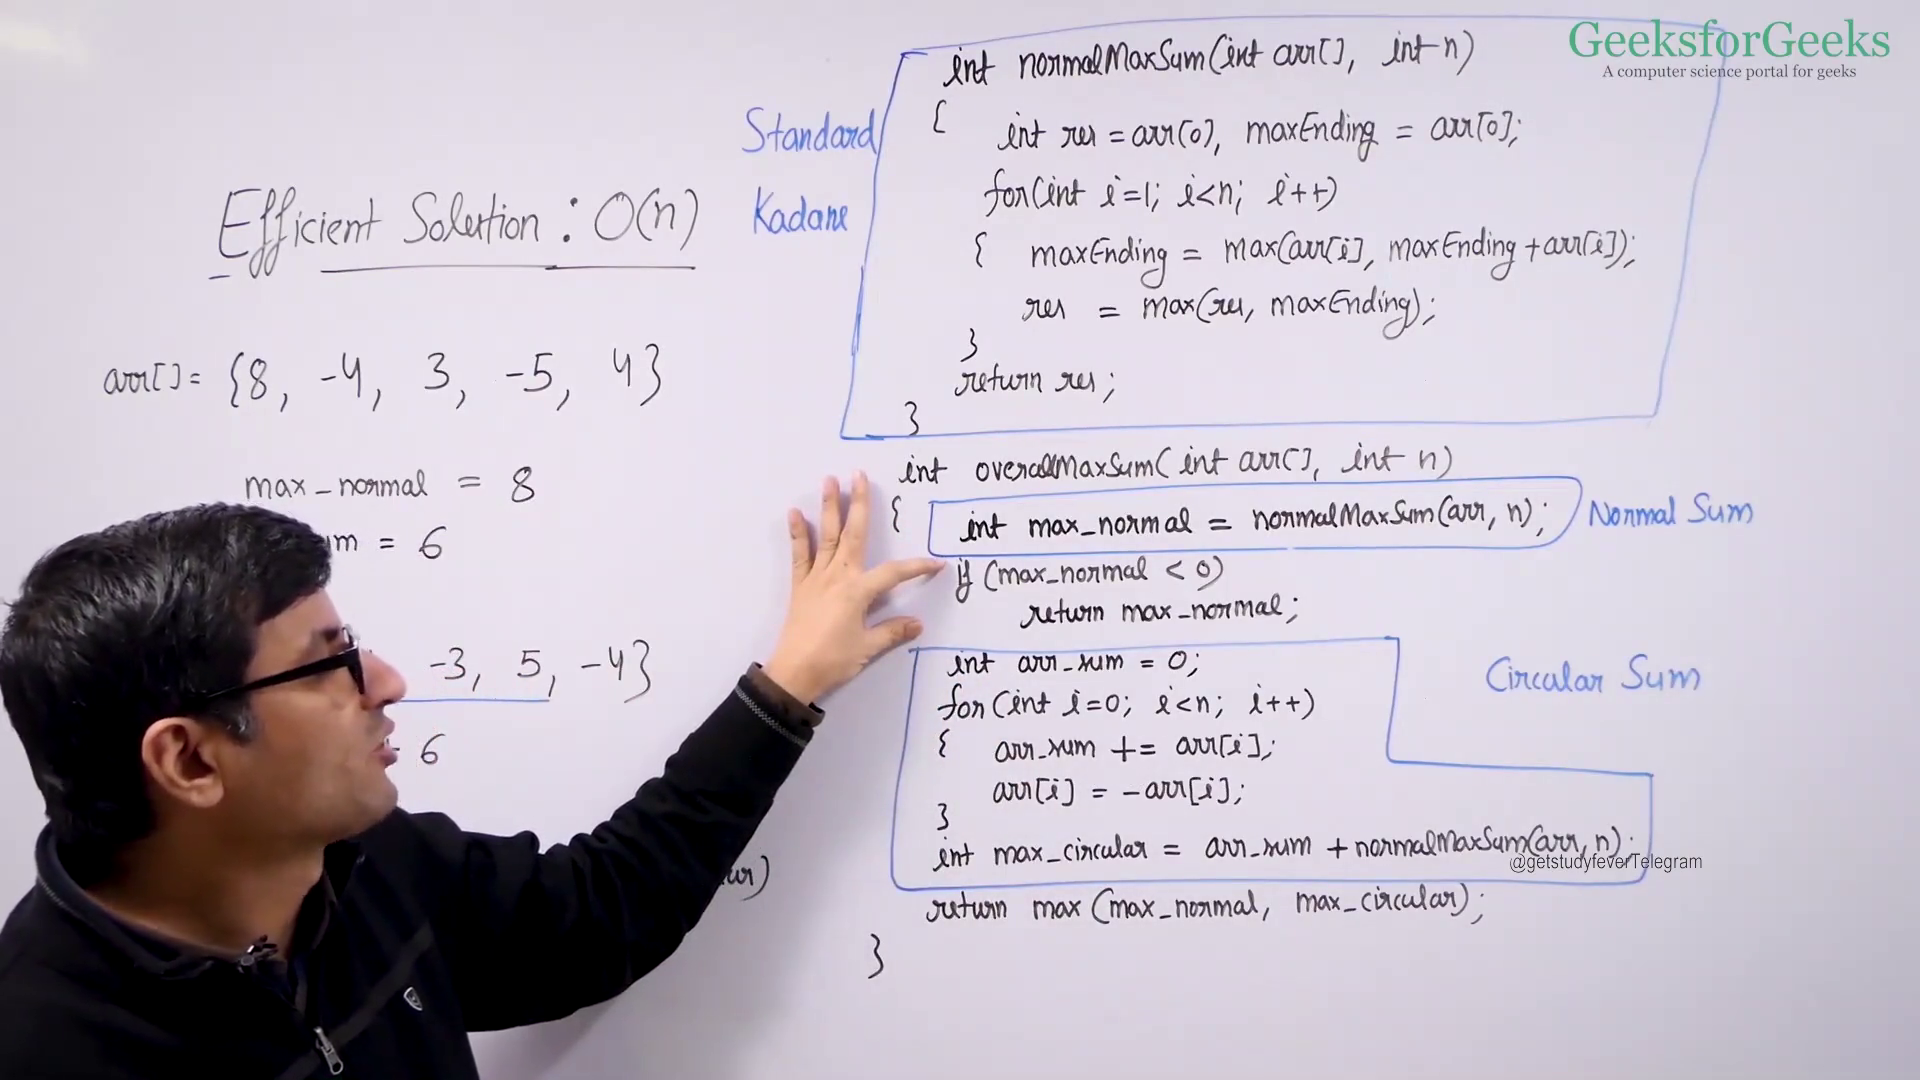 GeeksforGeeks
A computer science portal for geeks
Efficient Solution : O(n)
arr[] = {8, -4, 3, -5, 4}
max_normal = 8
um = 6
-3, 5, -4}
6
Standard
Kadane
int normalMaxSum(int arr[], int n)
{
int res = arr[0], maxEnding = arr[0];
for(int i=1; i<n; i++)
{ maxEnding = max(arr[i], maxEnding + arr[i]);
res = max(res, maxEnding);
}
return res;
}
int overallMaxSum(int arr[], int n)
{ int max_normal = normalMaxSum(arr, n);
Normal Sum
if (max_normal < 0)
return max_normal;
int arr_sum = 0;
Circular Sum
for(int i=0; i<n; i++)
{ arr_sum += arr[i];
arr[i] = -arr[i];
}
int max_circular = arr_sum + normalMaxSum(arr, n);
@getstudyfeverTelegram
return max (max_normal, max_circular);
}